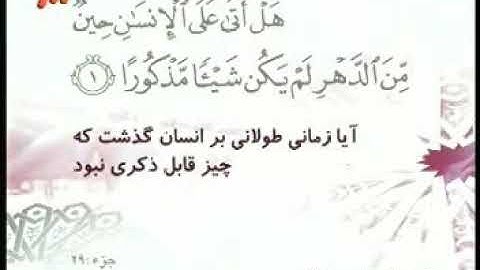 هَلْ أَتَىٰ عَلَى الْإِنسَانِ حِينٌ
مِّنَ الدَّهْرِ لَمْ يَكُن شَيْئًا مَّذْكُورًا ﴿١﴾
آیا زمانی طولانی بر انسان گذشت که
چیز قابل ذکری نبود
جزء: ۲۹